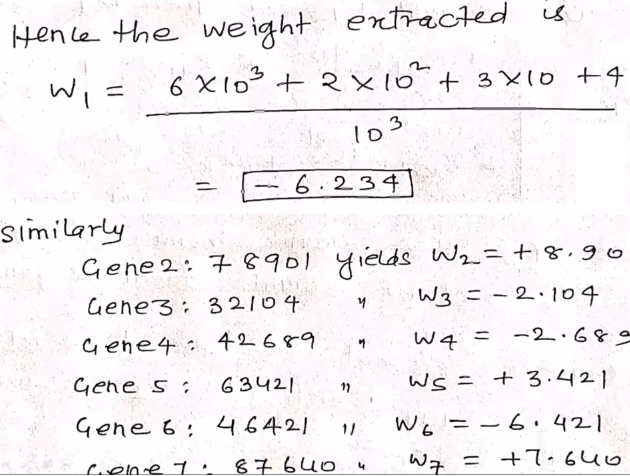 Hence the weight extracted is
W1 = 6 X 10^3 + 2 X 10^2 + 3 X 10 + 4
10^3
= - 6.234
similarly
Gene2: 78901 yields W2 = +8.90
Gene3: 32104 " W3 = -2.104
Gene4: 42689 " W4 = -2.689
Gene 5: 63421 " W5 = +3.421
Gene 6: 46421 " W6 = -6.421
Gene 7: 87640 " W7 = +7.640